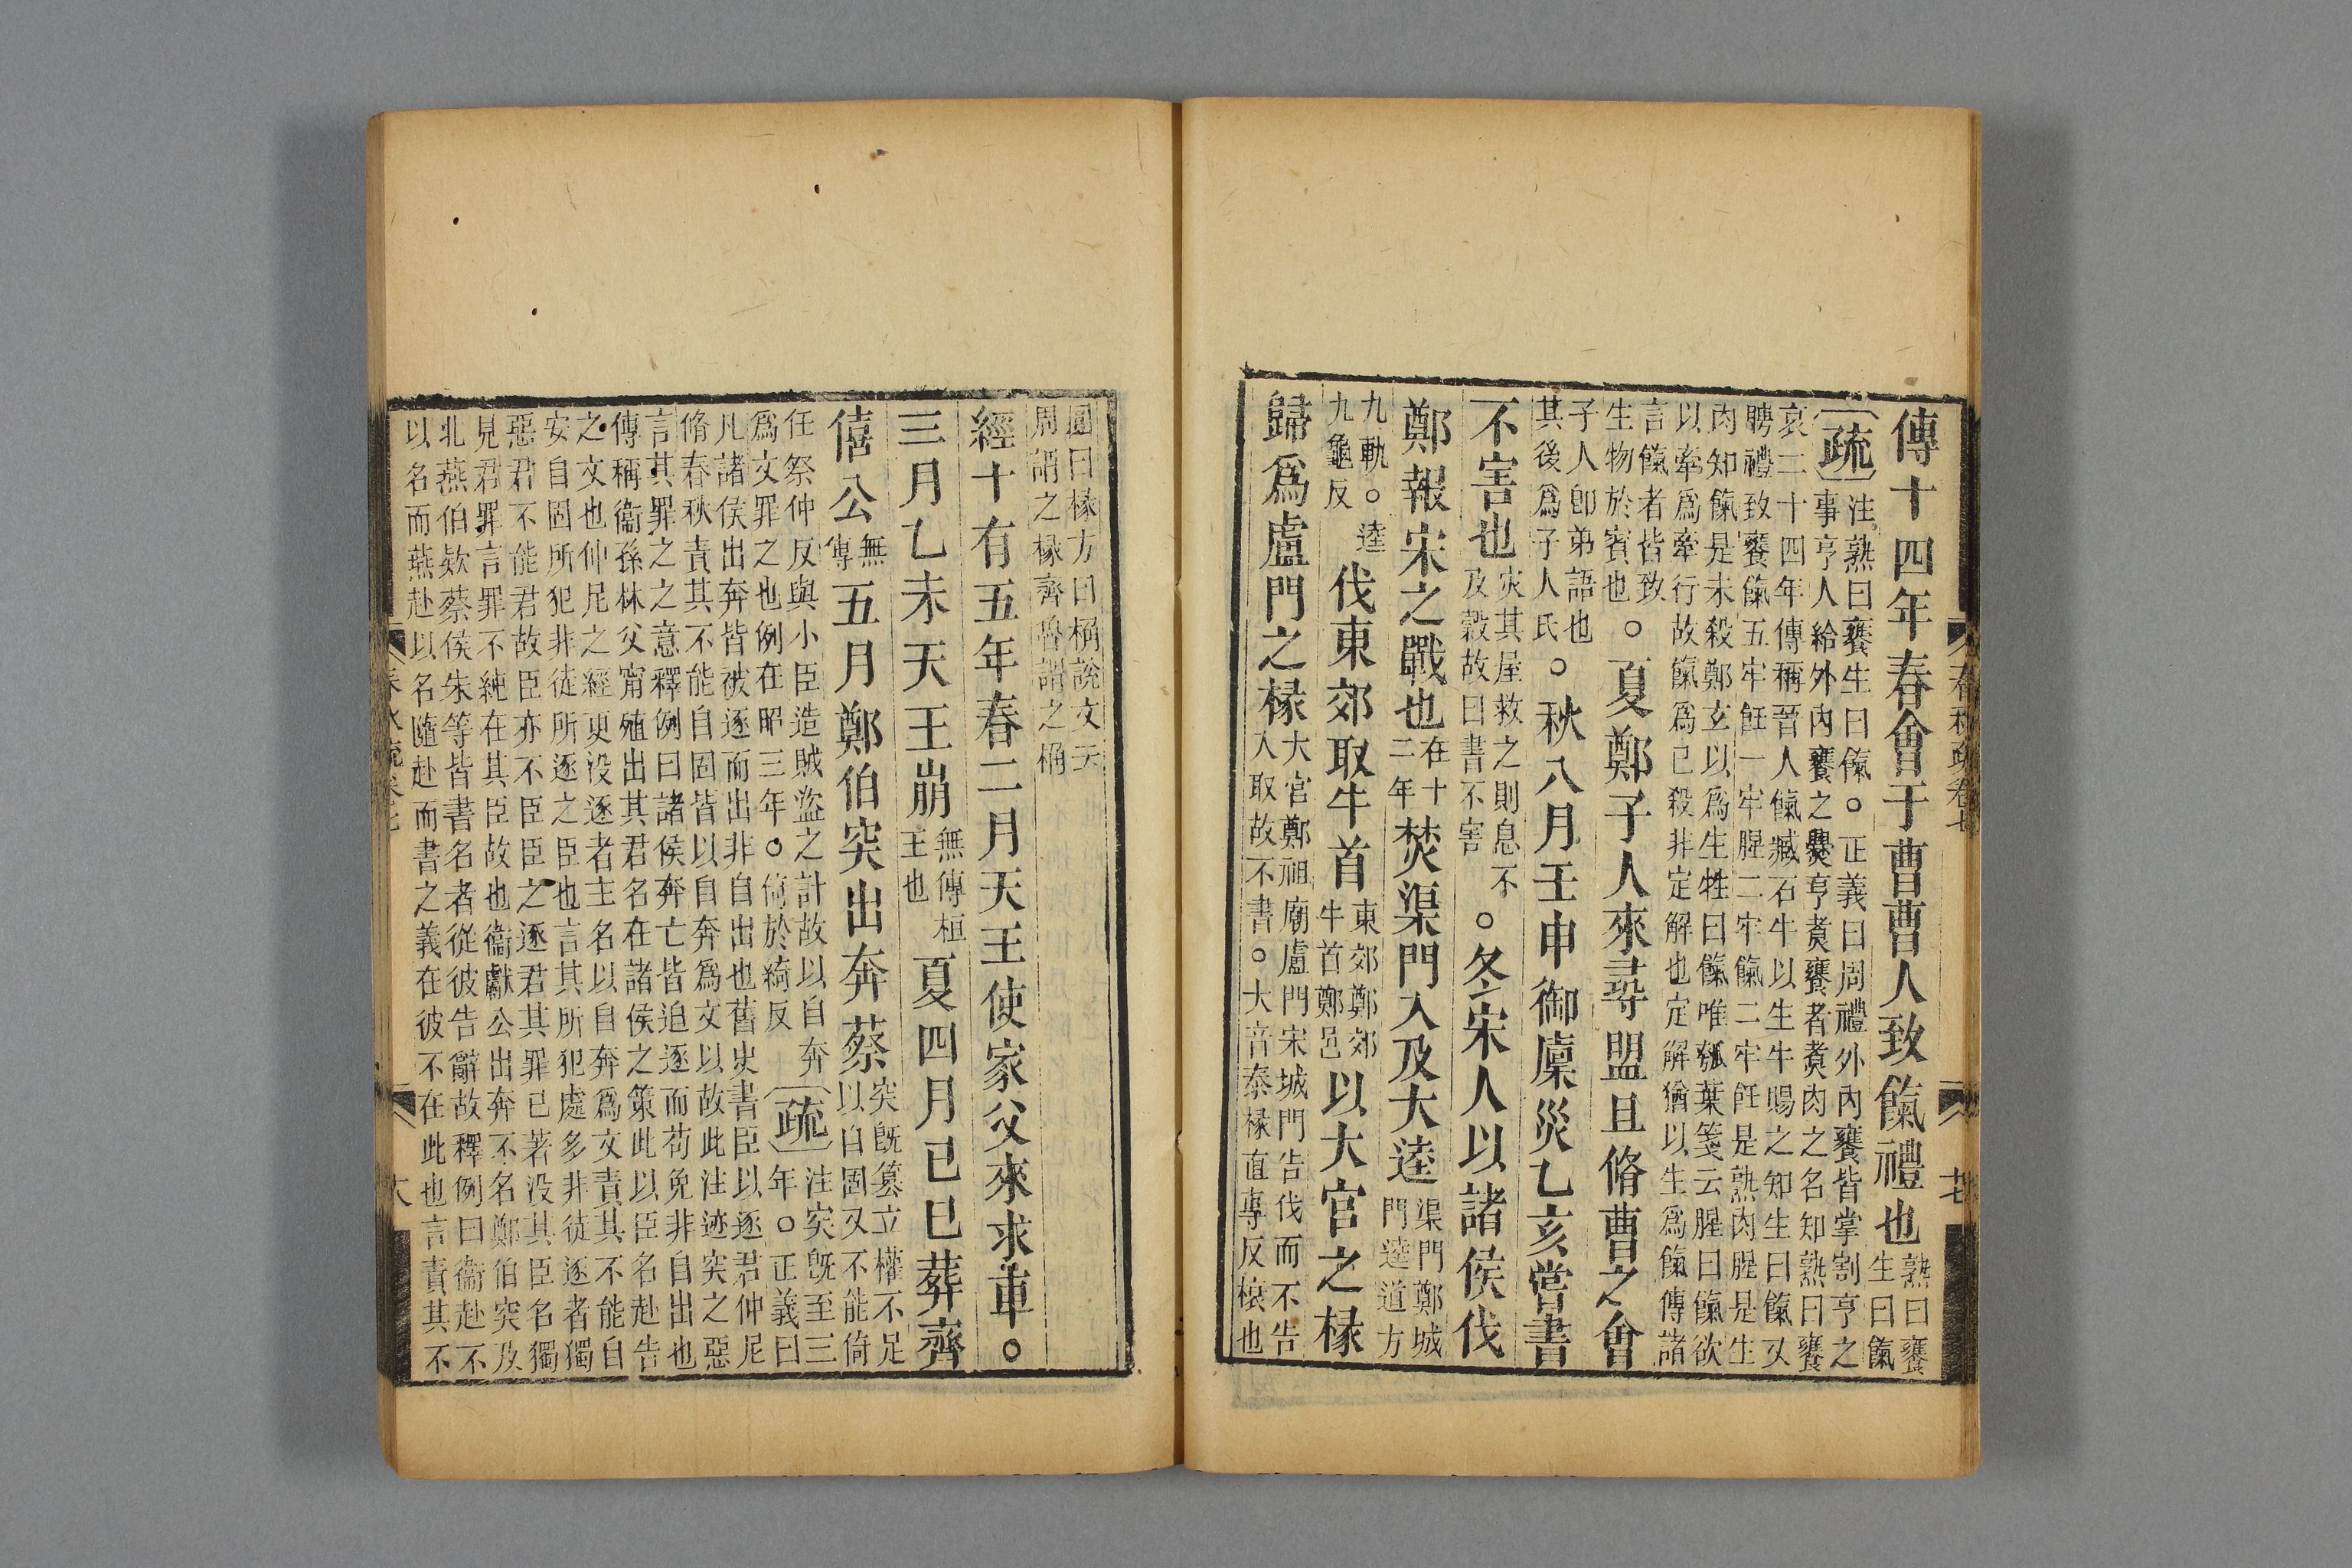 傳十四年春會于曹曹人致餼禮也熟曰饔生曰餼
疏注熟曰饔生曰餼○正義曰周禮外內饔皆掌割亨之事亨人給外內饔之爨亨煑饔者煑肉之名知熟曰饔
哀二十四年傳稱晉人餼臧石牛以生牛賜之知生曰餼又聘禮致饔餼五牢飪一牢腥二牢餼二牢飪是熟肉腥是生
肉知餼是未殺鄭玄以爲生牲曰餼唯瓠葉箋云腥曰餼欲以牽爲牽行故餼爲已殺非定解也定解猶以生爲餼傳諸
言餼者皆致生物於賓也○夏鄭子人來尋盟且脩曹之會
子人卽弟語也其後爲子人氏○秋八月壬申御廩災乙亥嘗書
不害也災其屋救之則息不及穀故曰書不害○冬宋人以諸侯伐
鄭報宋之戰也在十二年焚渠門入及大逵渠門鄭城門逵道方
九軌○逵九龜反伐東郊取牛首東郊鄭郊牛首鄭邑以大宮之椽
歸爲盧門之椽大宮鄭祖廟盧門宋城門告伐而不告入取故不書○大音泰椽直專反榱也
圓曰椽方曰桷說文云周謂之椽齊魯謂之桷
經十有五年春二月天王使家父來求車○
三月乙未天王崩無傳桓王也夏四月己巳葬齊
僖公無傳五月鄭伯突出奔蔡突旣篡立權不足以自固又不能倚
任祭仲反與小臣造賊盜之計故以自奔爲文罪之也例在昭三年○倚於綺反疏注突旣至三年○正義曰
凡諸侯出奔皆被逐而出非自出也舊史書臣以逐君仲尼脩春秋責其不能自固皆以自奔爲文以故此注迹突之惡
言其罪之之意釋例曰諸侯奔亡皆迫逐而苟免非自出也傳稱衞孫林父甯殖出其君名在諸侯之策此以臣名赴告
之文也仲尼之經更沒逐者主名以自奔爲文責其不能自安自固所犯非徒所逐之臣也言其所犯處多非徒逐者獨
惡君不能君故臣亦不臣臣之逐君其罪已著沒其臣名獨見君罪言罪不純在其臣故也衞獻公出奔不名鄭伯突及
北燕伯款蔡侯朱等皆書名者從彼告辭故釋例曰衞赴不以名而燕赴以名隨赴而書之義在彼不在此也言責其不
春秋疏卷七